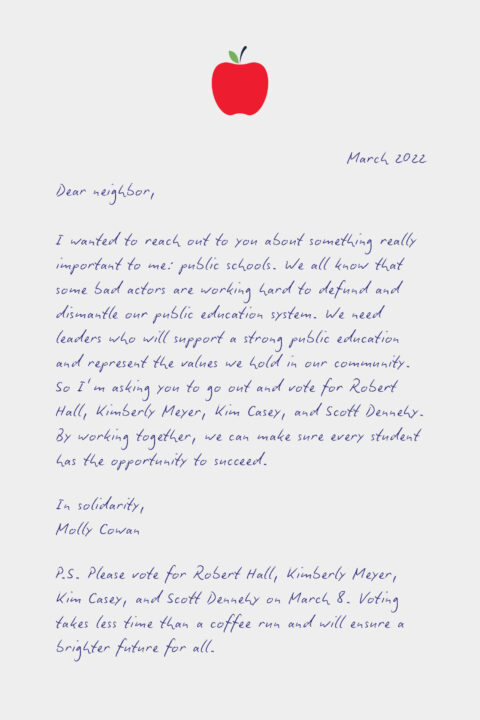 March 2022
Dear neighbor,
I wanted to reach out to you about something really
important to me: public schools. We all know that
some bad actors are working hard to defund and
dismantle our public education system. We need
leaders who will support a strong public education
and represent the values we hold in our community.
So I'm asking you to go out and vote for Robert
Hall, Kimberly Meyer, Kim Casey, and Scott Dennehy.
By working together, we can make sure every student
has the opportunity to succeed.
In solidarity,
Molly Cowan
P.S. Please vote for Robert Hall, Kimberly Meyer,
Kim Casey, and Scott Dennehy on March 8. Voting
takes less time than a coffee run and will ensure a
brighter future for all.